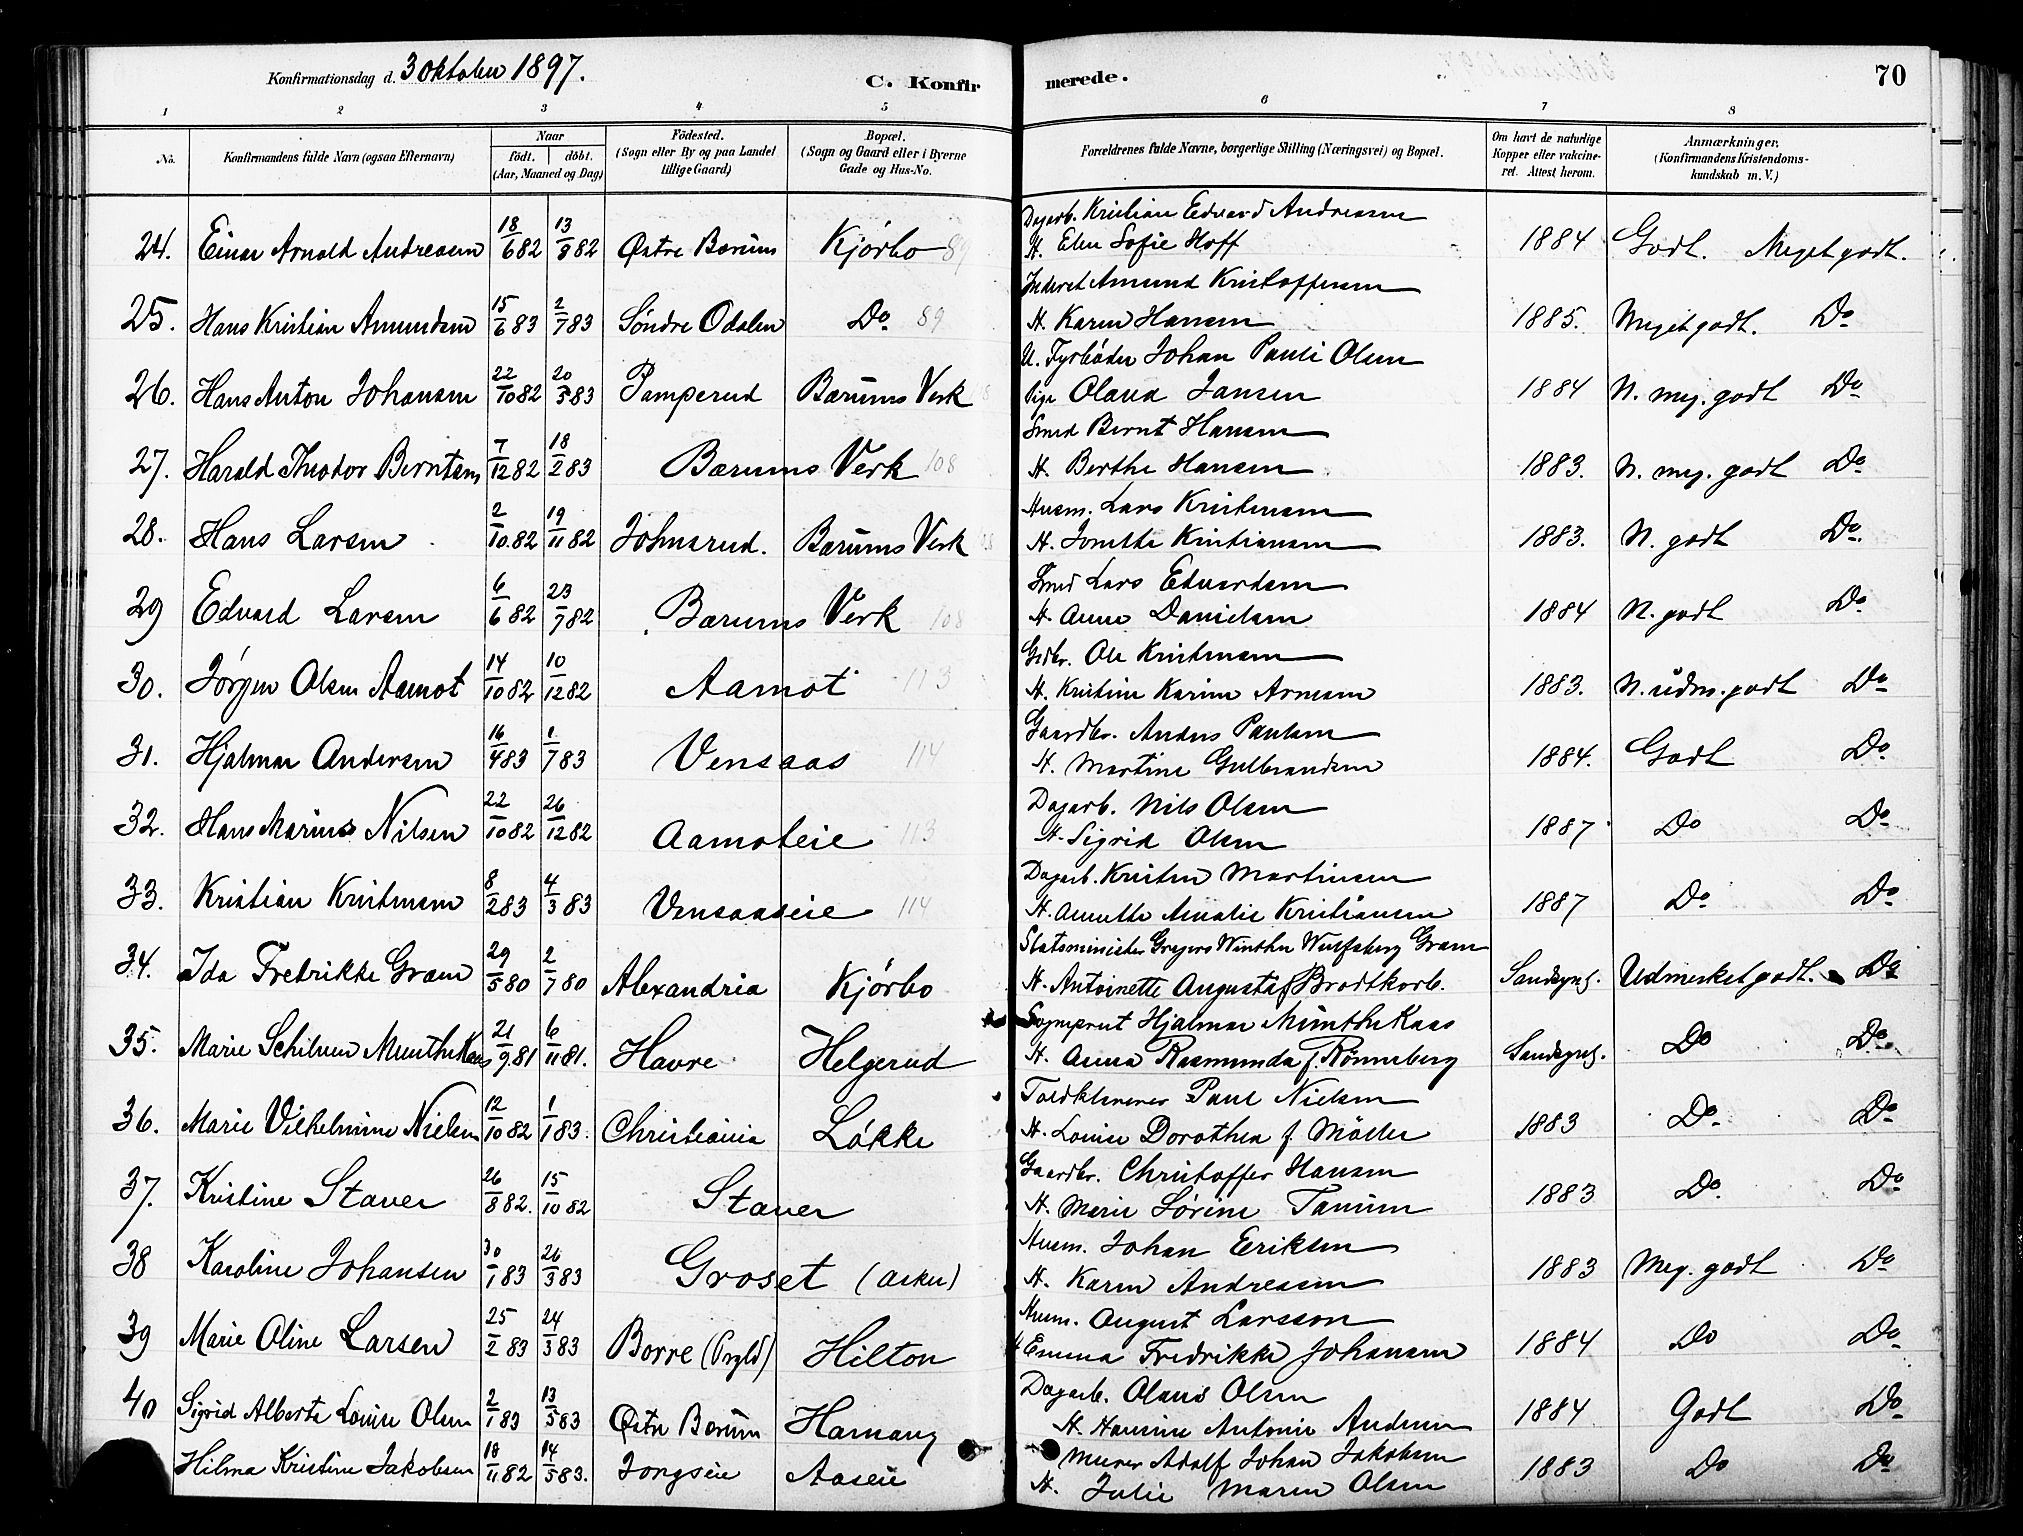 Konfirmationsdag d. 3 Oktober 1897.
C. Konfir
merede.
70
1 2 3 4 5 6 7 8
No.
Konfirmandens fulde Navn (ogsaa Efternavn)
Naar
födt. döbt.
(Aar, Maaned og Dag)
Födested.
(Sogn eller By og paa Landet
tillige Gaard)
Bopæl.
(Sogn og Gaard eller i Byerne
Gade og Hus-No.
Forældrenes fulde Navne, borgerlige Stilling (Næringsvei) og Bopæl.
Om havt de naturlige
Kopper eller vakcine-
ret. Attest herom.
Anmærkninger.
(Konfirmandens Kristendoms-
kundskab m. V.)
Dagarb. Kristian Edvard Andreasen
24. Einar Arnold Andreasen 18/6 82 13/8 82 Östre Bærum Kjörbo 89 H. Elen Sofie Hoff 1884 Godt. Meget godt.
Inderst Amund Kristoffersen
25. Hans Kristian Amundsen 15/6 83 2/7 83 Söndre Odalen Do 89 H. Karen Hansen 1885. Meget godt. Do
U. Fyrböder Johan Pauli Olsen
26. Hans Anton Johansen 22/10 82 20/5 83 Pamperud Bærums Verk Pige Olava Jansen 1884 N. meg. godt Do
Smed Bernt Hansen
27. Harald Theodor Berntsen 7/12 82 18/2 83 Bærums Verk 108 H. Berthe Hansen 1883. N. meg. godt Do
Husm. Lars Kristensen
28. Hans Larsen 2/10 82 19/11 82 Johnsrud. Bærums Verk H. Josethe Kristiansen 1883. N. godt Do
Smed Lars Edvardsen
29 Edvard Larsen 6/6 82 23/7 82 Bærums Verk 108 H. Anne Danielsen 1884 N. godt Do
Gdbr. Ole Kristensen
30. Jörgen Olsen Aamot 14/10 82 10/12 82 Aamot 113 H. Kristine Karine Arnesen 1883. N. udm. godt Do
Gaardbr. Anders Paulsen
31. Hjalmar Andersen 16/4 83 1/7 83 Vensaas 114 H. Martine Gulbrandsen 1884. Godt Do
Dagarb. Nils Olsen
32. Hans Marius Nilsen 22/10 82 26/12 82 Aamoteie 113 H. Sigrid Olsen 1887 Do Do
Dagarb. Kristen Martinsen
33. Kristian Kristensen 8/2 83 4/3 83 Vensaaseie 114 H. Annethe Amalie Kristiansen 1887 Do Do
Statsminister Gregers Winther Wulfsberg Gram
34. Ida Fredrikke Gram 29/5 80 2/7 80 Alexandria Kjörbo H. Antoinette Augusta f. Brodtkorb. Sandsynl. Udmerket godt. Do
Sogneprest Hjalmar Munthe Kaas
35. Marie Munthe Kaas 21/9 81 6/11 81. Havre Helgerud H. Anna Rasmunda f. Rönneberg Sandsynl. Do Do
Toldklarerer Paul Nielsen
36. Marie Vilhelmine Nielsen 12/10 82 1/1 83. Christiania Lökke H. Louise Dorothea f. Möller 1883 Do Do
Gaardbr. Christoffer Hansen
37. Kristine Staver 26/8 82. 15/10 82 Staver H. Marie Sörine Tanum 1883 Do Do
Husm. Johan Eriksen
38 Karoline Johansen 30/1 83 26/3 83 Groset (Asker) H. Karen Andreasen 1883 Meg. godt Do
Husm. August Larsson
39 Marie Oline Larsen 25/2 83 24/3 83 Borre Hilton H Emma Fredrikke Johansen 1884 Do Do
Dagarb. Olaus Olsen
40 Sigrid Alberte Louise Olsen 2/1 83 13/5 83 Östre Bærum Hamang H. Antonie Andersen 1884 Godt Do
Murer Adolf Johan Jakobsen
Hilma Kristine Jakobsen 18/11 82 14/5 83. Jongseie Aaseie H. Julie Maren Olsen 1883 Do Do